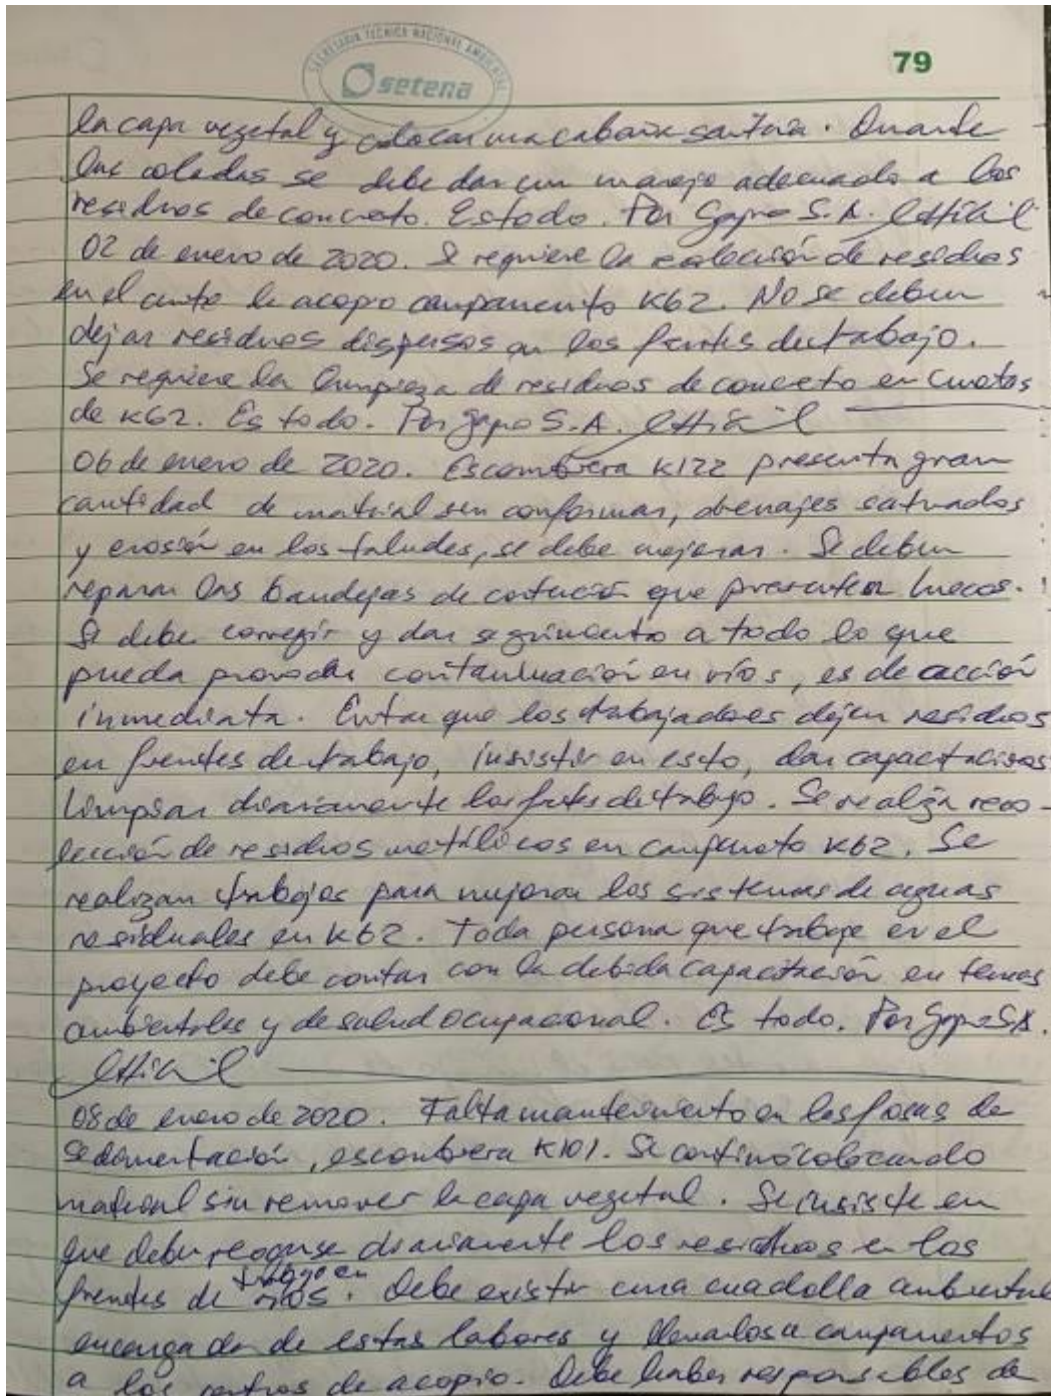 SECRETARIA TECNICA NACIONAL AMBIENTAL
setena
79
la capa vegetal y colocar una cabaña sanitaria. Durante
las coladas se debe dar un manejo adecuado a los
residuos de concreto. Es todo. Por S.A.
02 de enero de 2020. Se requiere la recolección de residuos
en el centro de acopio campamento K62. No se deben
dejar residuos dispersos en los frentes de trabajo.
Se requiere la limpieza de residuos de concreto en cunetas
de K62. Es todo. Por S.A.
06 de enero de 2020. Escombrera K122 presenta gran
cantidad de material sin conformar, drenajes saturados
y erosión en los taludes, se debe mejorar. Se deben
reparar las bandejas de contención que presenten huecos.
Se debe corregir y dar seguimiento a todo lo que
pueda provocar contaminación en ríos, es de acción
inmediata. Evitar que los trabajadores dejen residuos
en frentes de trabajo, insistir en esto, dar capacitaciones
limpiar diariamente los frentes de trabajo. Se realiza reco-
lección de residuos metálicos en campamento K62. Se
realizan trabajos para mejorar los sistemas de aguas
residuales en K62. Toda persona que trabaje en el
proyecto debe contar con la debida capacitación en temas
ambientales y de salud ocupacional. Es todo. Por
08 de enero de 2020. Falta mantenimiento en las fosas de
sedimentación, escombrera K101. Se continúa colocando
material sin remover la capa vegetal. Se insiste en
que deben recogerse diariamente los residuos en los
frentes de trabajo en ríos. Debe existir una cuadrilla ambiental
encargada de estas labores y llevarlos a campamentos
a los centros de acopio. Debe haber responsables de